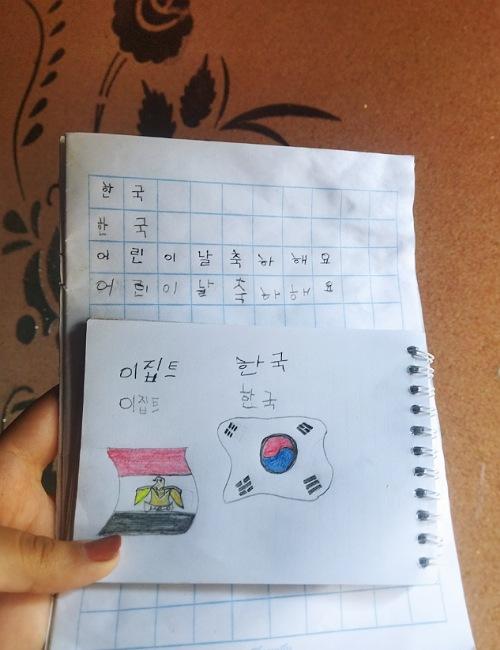 한국
한국
어린이날축하해요
어린이날축하해요
이집트 한국
이집트 한국